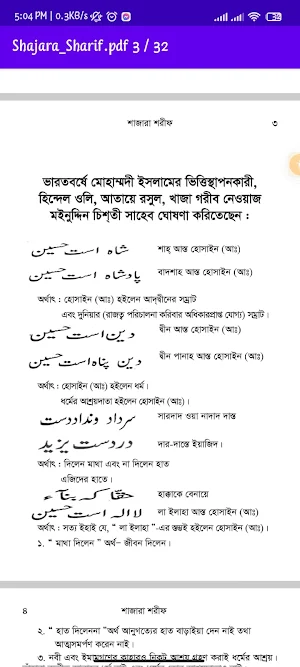 5:04 PM | 0.3KB/s
Shajara_Sharif.pdf 3 / 32
শাজারা শরীফ ৩
ভারতবর্ষে মোহাম্মদী ইসলামের ভিত্তিস্থাপনকারী,
হিন্দেল ওলি, আতায়ে রসুল, খাজা গরীব নেওয়াজ
মইনুদ্দিন চিশ্‌তী সাহেব ঘোষণা করিতেছেন :
شاہ است حسین শাহ্ আস্ত হোসাইন (আঃ)
پادشاہ است حسین বাদশাহ আস্ত হোসাইন (আঃ)
অর্থাৎ : হোসাইন (আঃ) হইলেন আদ্‌দ্বীনের সম্রাট
এবং দুনিয়ার (রাজত্ব পরিচালনা করিবার অধিকারপ্রাপ্ত যোগ্য) সম্রাট।
دین است حسین দ্বীন আস্ত হোসাইন (আঃ)
دین پناہ است حسین দ্বীন পানাহ আস্ত হোসাইন (আঃ)
অর্থাৎ : হোসাইন (আঃ) হইলেন ধর্ম।
ধর্মের আশ্রয়দাতা হইলেন হোসাইন (আঃ)।
سرداد ونداد دست সারদাদ ওয়া নাদাদ দাস্ত
در دست یزید দার-দাস্তে ইয়াজিদ।
অর্থাৎ : দিলেন মাথা এবং না দিলেন হাত
এজিদের হাতে।
حقا کہ بناء হাক্কাকে বেনায়ে
لا الہ است حسین লা ইলাহা আস্ত হোসাইন (আঃ)
অর্থাৎ : সত্য ইহাই যে, “ লা ইলাহা ”-এর স্তম্ভই হইলেন হোসাইন (আঃ)।
১. “ মাথা দিলেন ” অর্থ– জীবন দিলেন।
৪ শাজারা শরীফ
২. “ হাত দিলেননা ”অর্থ আনুগত্যের হাত বাড়াইয়া দেন নাই তথা
আত্মসমর্পণ করেন নাই।
৩. নবী এবং ইমামগণের কাহারও নিকট আশ্রয় গ্রহণ করাই ধর্মের আশ্রয়।